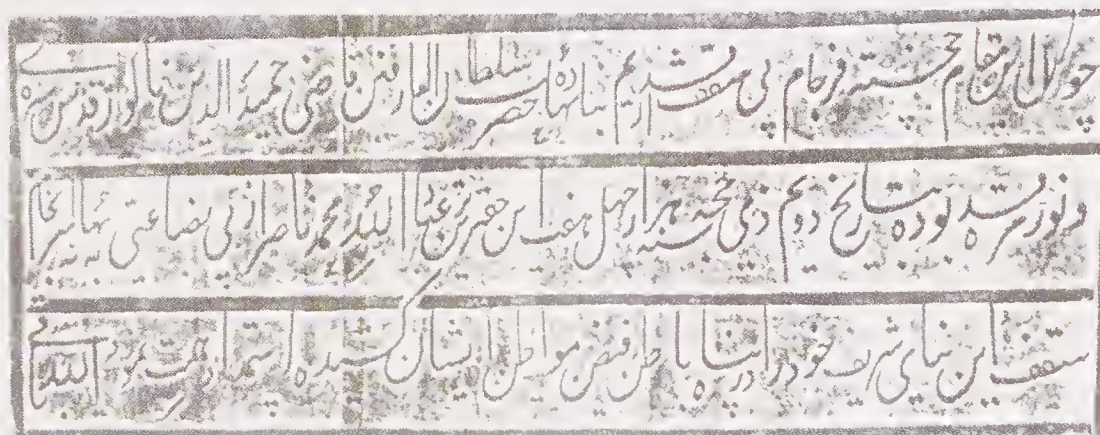 چون این مقام خجسته فرجام بی سقف شد قدیم بنا نهاده حضرت سلطان العارفین قاضی حمیدالدین ناگوری قدس سره
و نور مرقده بوده بتاریخ دویم ذی حجه سنه هزار چهل هفت این حقیر ترین عبادالله محمد ناصر از بی بضاعتی سرانجام
سقف این بنای شریف خود را در پناه باطن فیض مواطن ایشان کشیده استمداد همت نمود الله باقی